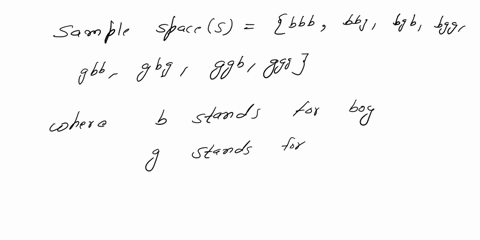 Sample space(s) = {bbb, bbg, bgb, bgg,
gbb, gbg, ggb, ggg}
where b stands for boy
g stands for